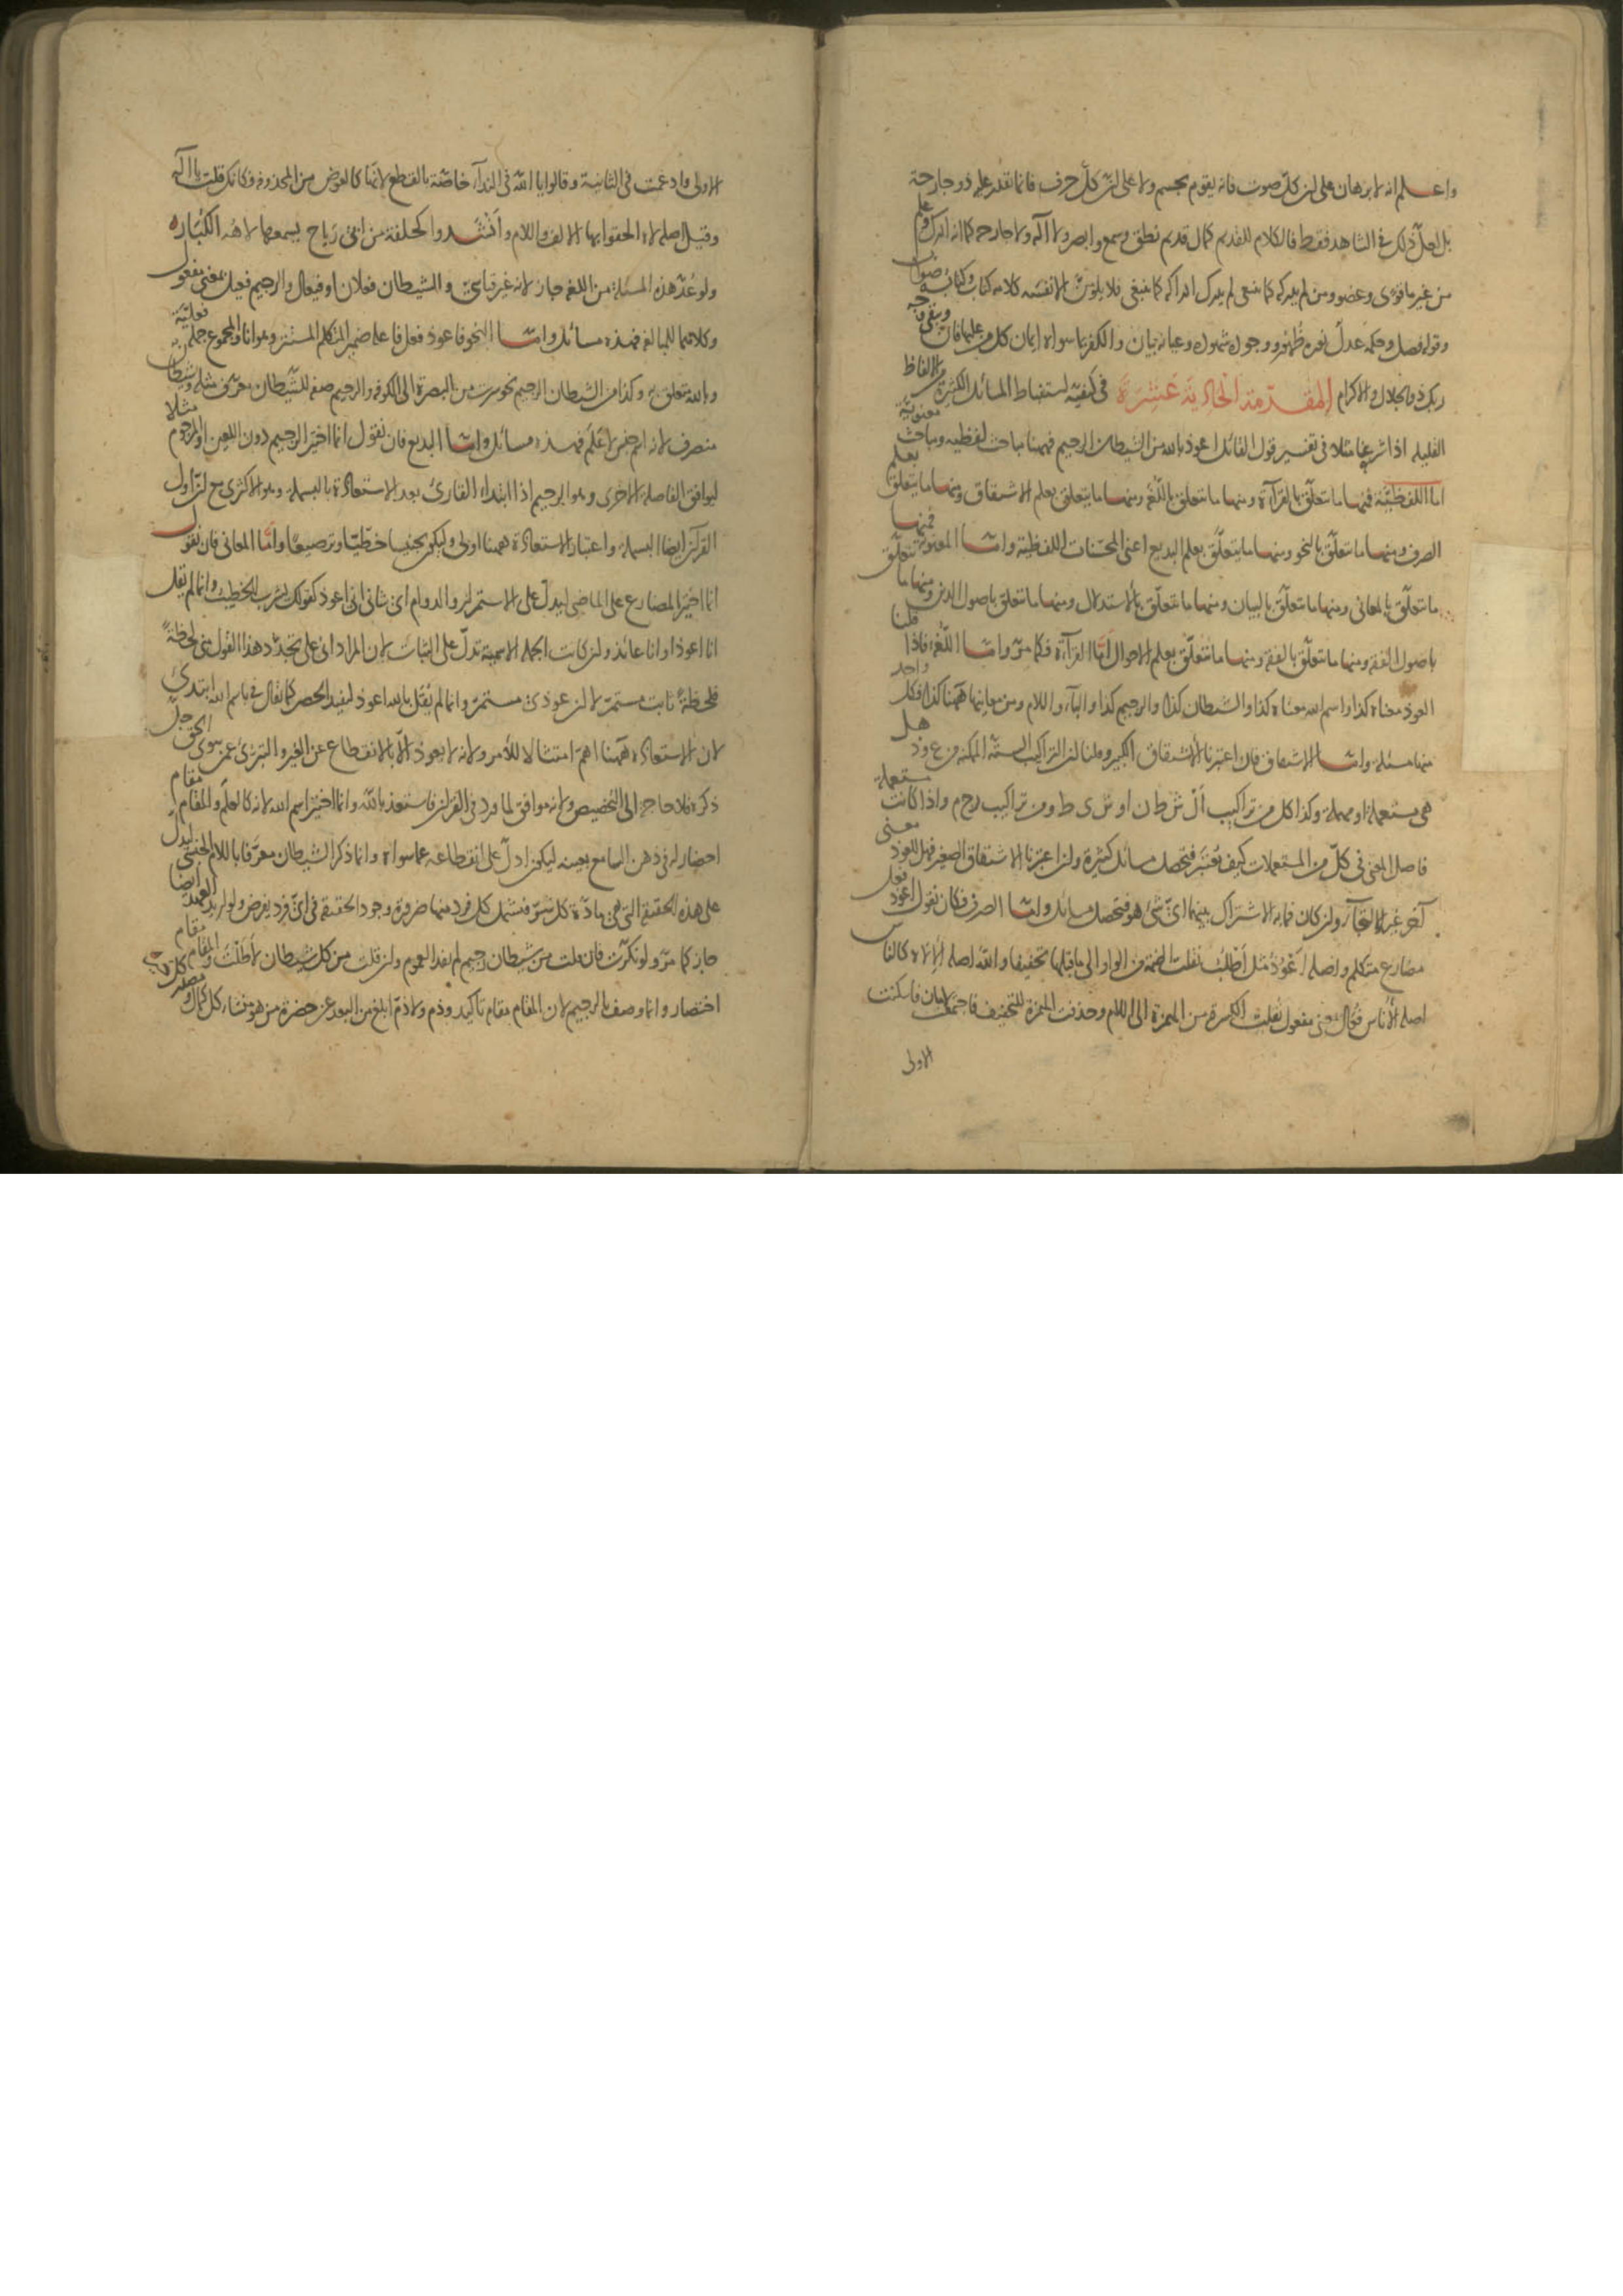 واعلم انه لا برهان على ان كلّ صوت فانه يقوم بجسم ولا على انّ كلّ حرف فانما يقدر عليه ذو جارحة
بل لعلّ ذلك في الشاهد فقط فالكلام للقديم كمال قديم نطق وسمع وابصر ولا آلة ولا جارحة كما انه ادرك وعلم
من غير ما قوى وعضو ومن لم يدركه كما ينبغي لم يدرك ادراكه كما ينبغي فلا يلومنّ الا نفسه كلامه كتاب وكتابه صواب
وقوله فصل وحكمه عدل نوره ظهور ووجوده شهود وعيانه بيان والكفر بما سواه ايمان كل من عليها فان ويبقى وجه
ربك ذو الجلال والاكرام المقدّمة الحادية عشرة في كيفية استنباط المسائل الكثيرة من الالفاظ
القليلة اذا شرعنا مثلا في تفسير قول القائل اعوذ بالله من الشيطان الرجيم فههنا مباحث لفظيه ومباحث معنوية
اما اللفظيّة فمنها ما يتعلّق بالقرآءة ومنها ما يتعلق باللّغة ومنها ما يتعلق بعلم الاشتقاق ومنها ما يتعلق بعلم
الصرف ومنها ما يتعلّق بالنحو ومنها ما يتعلّق بعلم البديع اعنى المحسّنات اللفظية وامّا المعنوية فمنها
ما يتعلّق بالمعاني ومنها ما يتعلّق بالبيان ومنها ما يتعلّق بالاستدلال ومنها ما يتعلق باصول الدين ومنها ما يتعلّق
باصول الفقه ومنها ما يتعلّق بالفقه ومنها ما يتعلّق بعلم الاحوال امّا القرآءة فكما مرّ وامّا اللّغة فاذا قلنا
العوذ معناه كذا واسم الله معناه كذا والشيطان كذا والرجيم كذا والبآء واللام ومن معانيها ههنا كذا فكل واحد
منها مسئلة وامّا الاشتقاق فان اعتبرنا الاشتقاق الكبير وقلنا ان التراكيب الستّة الممكنة من ع و ذ هل
هي مستعملة او مهملة وكذا كل من تراكيب أل ش ط ن او ش ى ط ومن تراكيب رج م واذا كانت مستعملة
فاصل المعنى في كلّ من المستعملات كيف يعتبر فتحصل مسائل كثيرة وان اعتبرنا الاشتقاق الصغير فهل للعوذ معنى
آخر غير الالتجآء وان كان فما به الاشتراك بينهما ايّ شئ هو فتحصل مسائل وامّا الصرف فكان نقول اعوذ فعل
مضارع متكلم واصله أعْوُذُ مثل أطلُبُ نقلت الضمة من الواو الى ما قبلها تخفيفا والله اصله الإلاه كالناس
اصله الأناس فعال بمعنى مفعول نقلت الكسرة من الهمزة الى اللام وحذفت الهمزة للتخفيف فاجتمعت لامان فاسكنت
الاولى
الاولى وادغمت في الثانية وقالوا يا الله في الندآء خاصّة بالقطع لانّها كالعوض من المحذوفة وكانك قلت يا اله
وقيل اصله لاه الحقوا بها الالف واللام وأنشدوا كحلفة من ابى رَباح يسمعها لاهُه الكُباره
ولو عُدّ هذه المسئلة من اللغة جاز لانه غير قياسيّ والشيطان فعلان او فيعال والرجيم فعيل بمعنى مفعول
وكلاهما للمبالغة فهذه مسائل وامّا النحو فاعوذ فعل فاعله ضمير المتكلم المستتر وهو انا والمجموع جملة فعليّة
وبالله متعلق به وكذا من الشيطان الرجيم نحو سرت من البصرة الى الكوفة والرجيم صفة للشّيطان معرّف مثله وشيطان
منصرف لانه اسم جنس لا عَلَم فهذه مسائل وامّا البديع فان نقول انما اختير الرجيم دون اللعين او المرجوم مثلا
ليوافق الفاصلة الاخرى وهو الرحيم اذا ابتداء القارئ بعد الاستعاذة بالبسملة وهو الاكثرى ح انّ اول
القرآن ايضا البسملة واعتبار الاستعاذة ههنا اولى وليكون تجنيسا خطّيّا وترصيعًا وامّا المعانى فان نقول
انما اختير المضارع على الماضى ليدلّ على الاستمرار والدوام اى شأنى انى اعوذ كقولك يشرب الخطيب وانما لم يقل
انا اعوذ او انا عائذ وان كانت الجملة الاسمية تدلّ على الثبات لان المراد انى على تجدّد هذا القول منى لحظةً
فلحظةً ثابت مستمرّ لا ان عوذى مستمرّ وانما لم يُقَل بالله اعوذ ليفيد الحصر كما يقال في باسم الله ابتدئ
لان الاستعاذة ههنا اهمّ امتثالا للأمر ولانه لا يعوذ الّا بالانقطاع عن الغير والتبرّئ عن سوى الحق جلّ
ذكره فلا حاجة الى التخصيص ولانه موافق لما ورد في القرآن فاستعذ بالله وانما اختير اسم الله لانه كالعلَم والمقام مقام
احضاره في ذهن السامع بعينه ليكون ادلّ على انقطاعه عما سواه وانما ذكر الشيطان معرّفا باللام الجنسى ليدلّ
على هذه الحقيقة التى هى مادّة كل شرّ فتشمل كل فرد منها ضرورة وجود الحقيقة فى اىّ فرد يفرض ولو اريد العهد ايضا
جاز كما مرّ ولو نكّرت فان قلت من شيطان رجيم لم يفد العموم وان قلت من كل شيطان لأطلت والمقام مقام
اختصار وانما وصف بالرجيم لان المقام مقام تأكيد وذم ولا ذمّ ابلغ من البعد عن حضرة من هو منشاء كل كمال